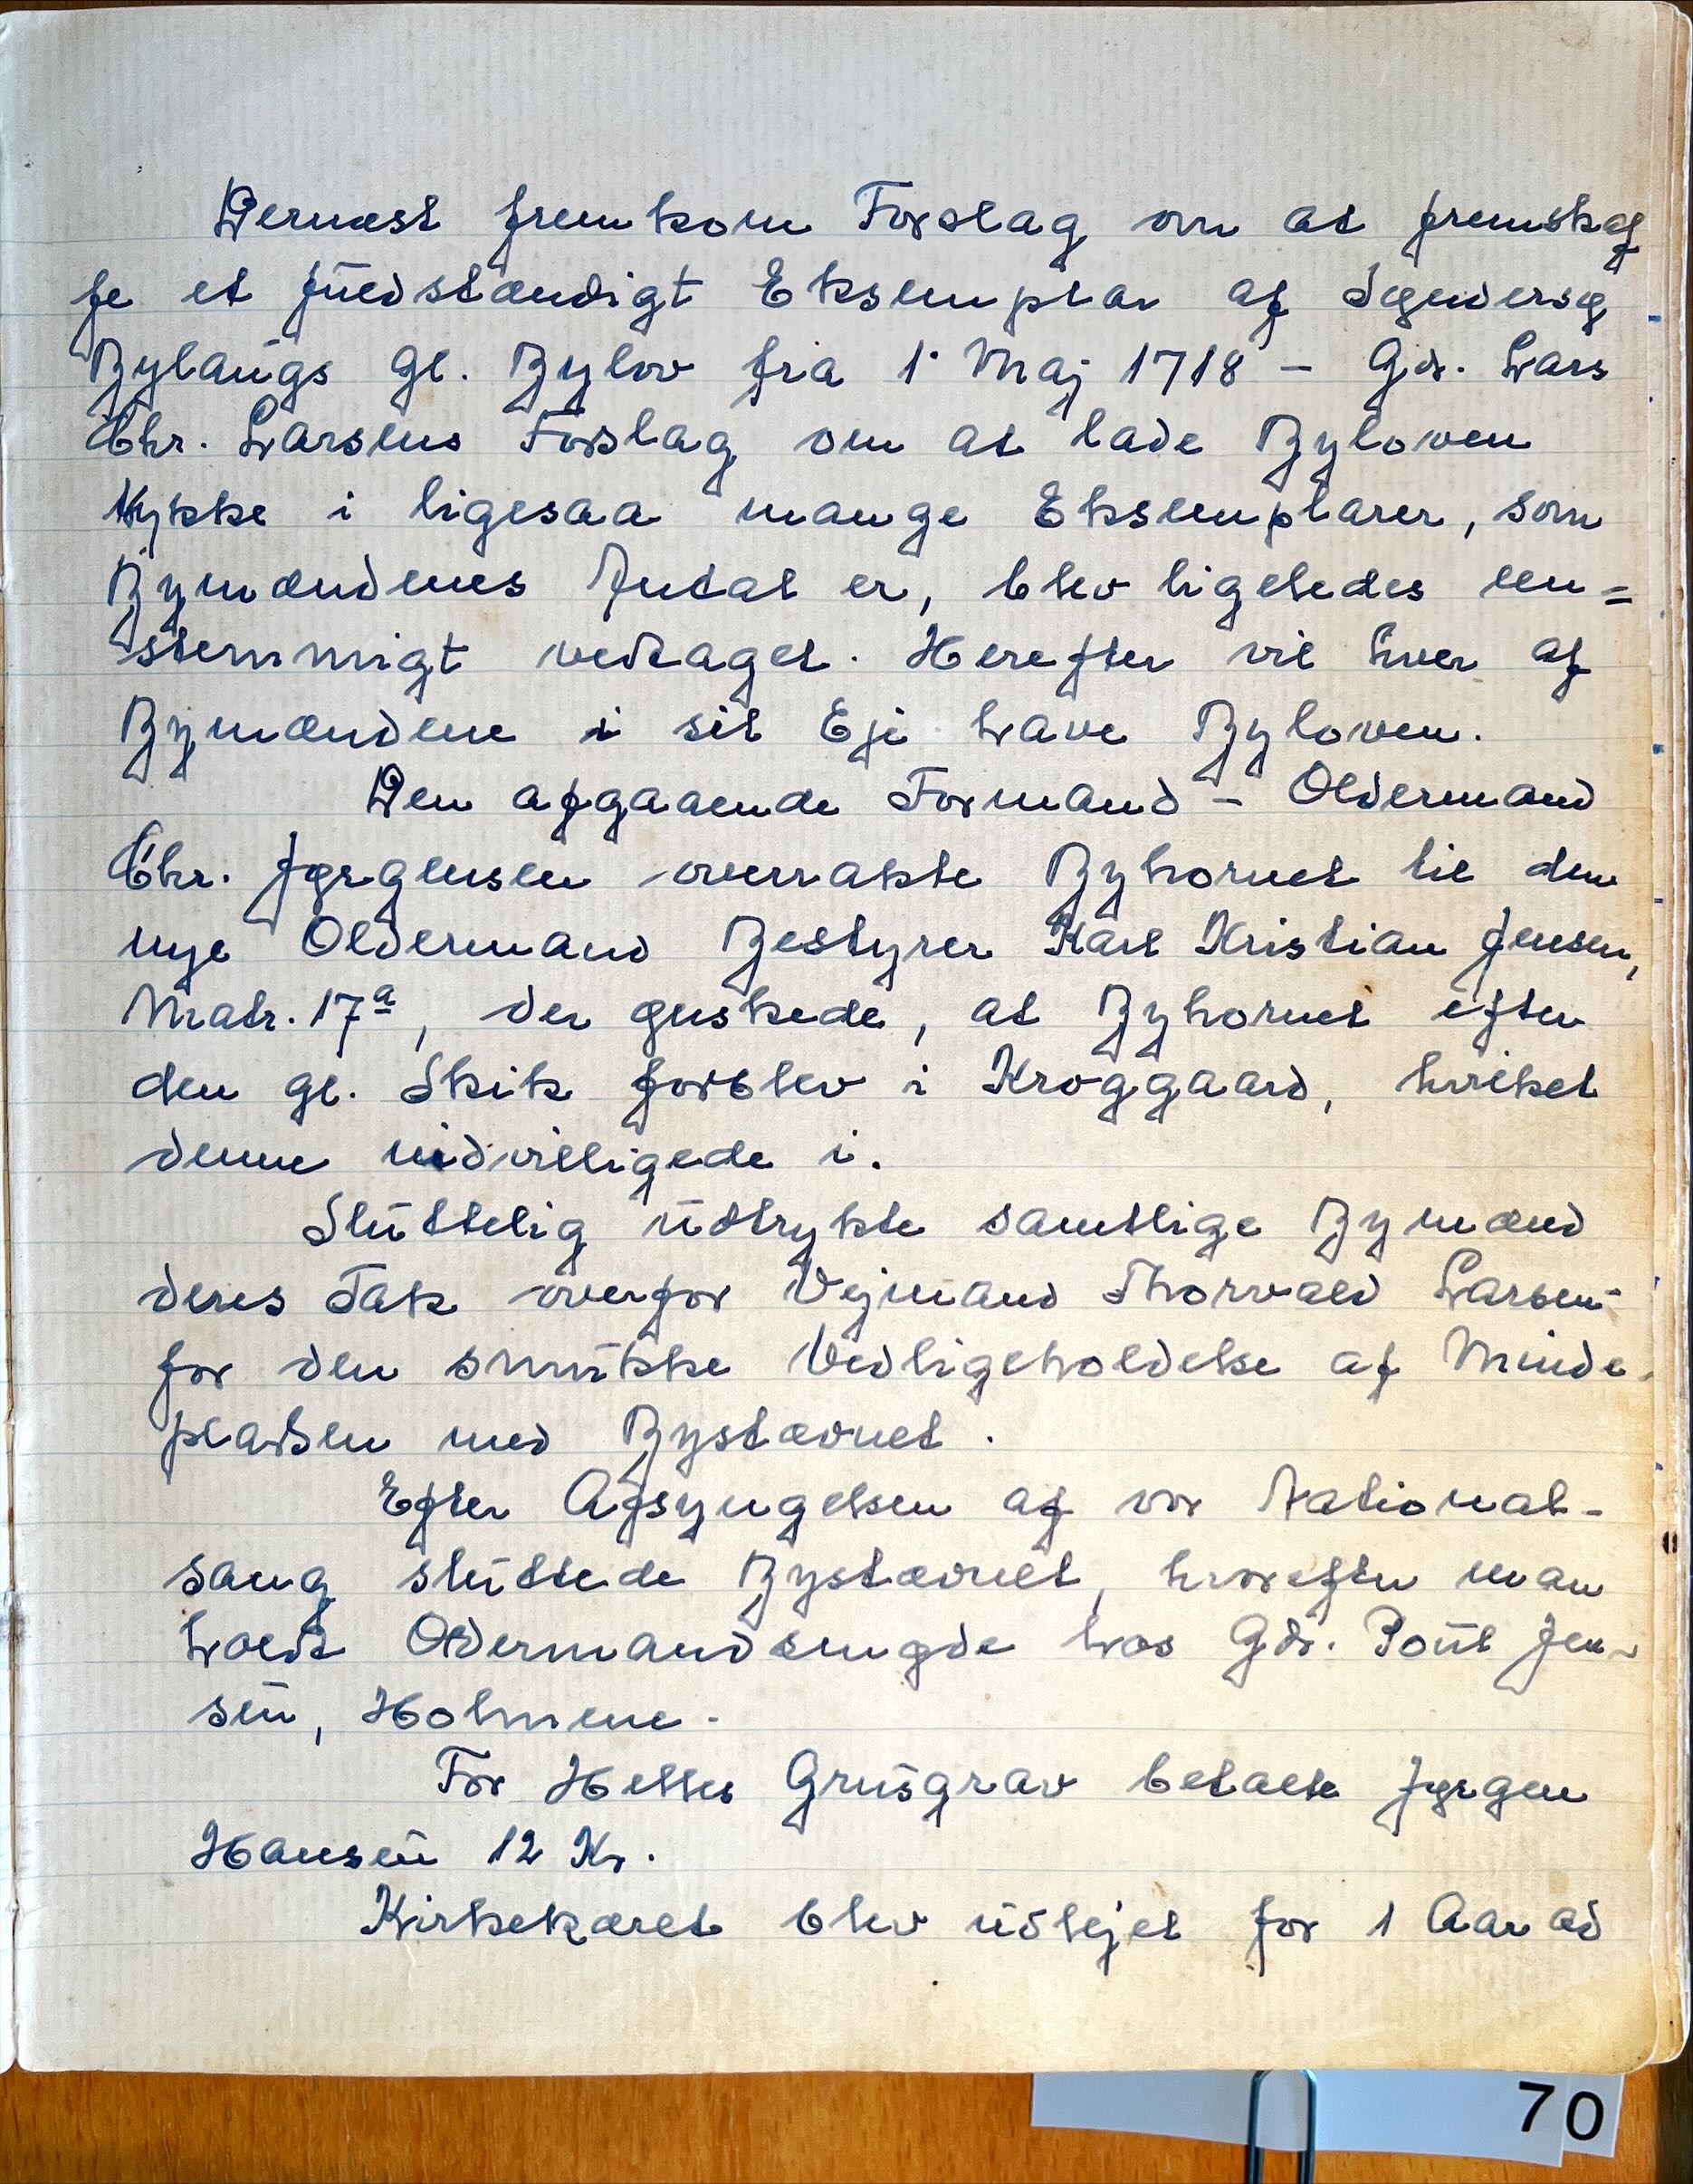 Dernæst fremkom Forslag om at fremskaf
fe et fuldstændigt Eksemplar af Søndersø
Bylaugs Gl. Bylov fra 1' Maj 1718 - Gdr. Lars
Chr. Larsens Forslag om at lade Byloven
trykke i ligesaa mange Eksemplarer, som
Bymændenes Antal er, blev ligeledes een=
stemmigt vedtaget. Herefter vil hver af
Bymændene i sit Eje have Byloven.
Den afgaaende Formand - Oldermand
Chr. Jørgensen overrakte Byhornet til den
nye Oldermand Bestyrer Karl Kristian Jensen,
Matr. 17a, der ønskede, at Byhornet efter
den gl. Skik forblev i Kroggaard, hvilket
denne indvilligede i.
Sluttelig udtrykte samtlige Bymænd
deres Tak overfor Vejmand Thorvald Larsen
for den smukke Vedligeholdelse af Minde
pladsen med Bystævnet.
Efter Afsyngelsen af vor National-
sang sluttede Bystævnet, hvorefter man
holdt Oldermandsmøde hos Gdr. Poul Jen-
sen, Holmene.
For Helles Grusgrav betalte Jørgen
Hansen 12 Kr.
Kirkekæret blev udlejet for 1 Aar ad
70